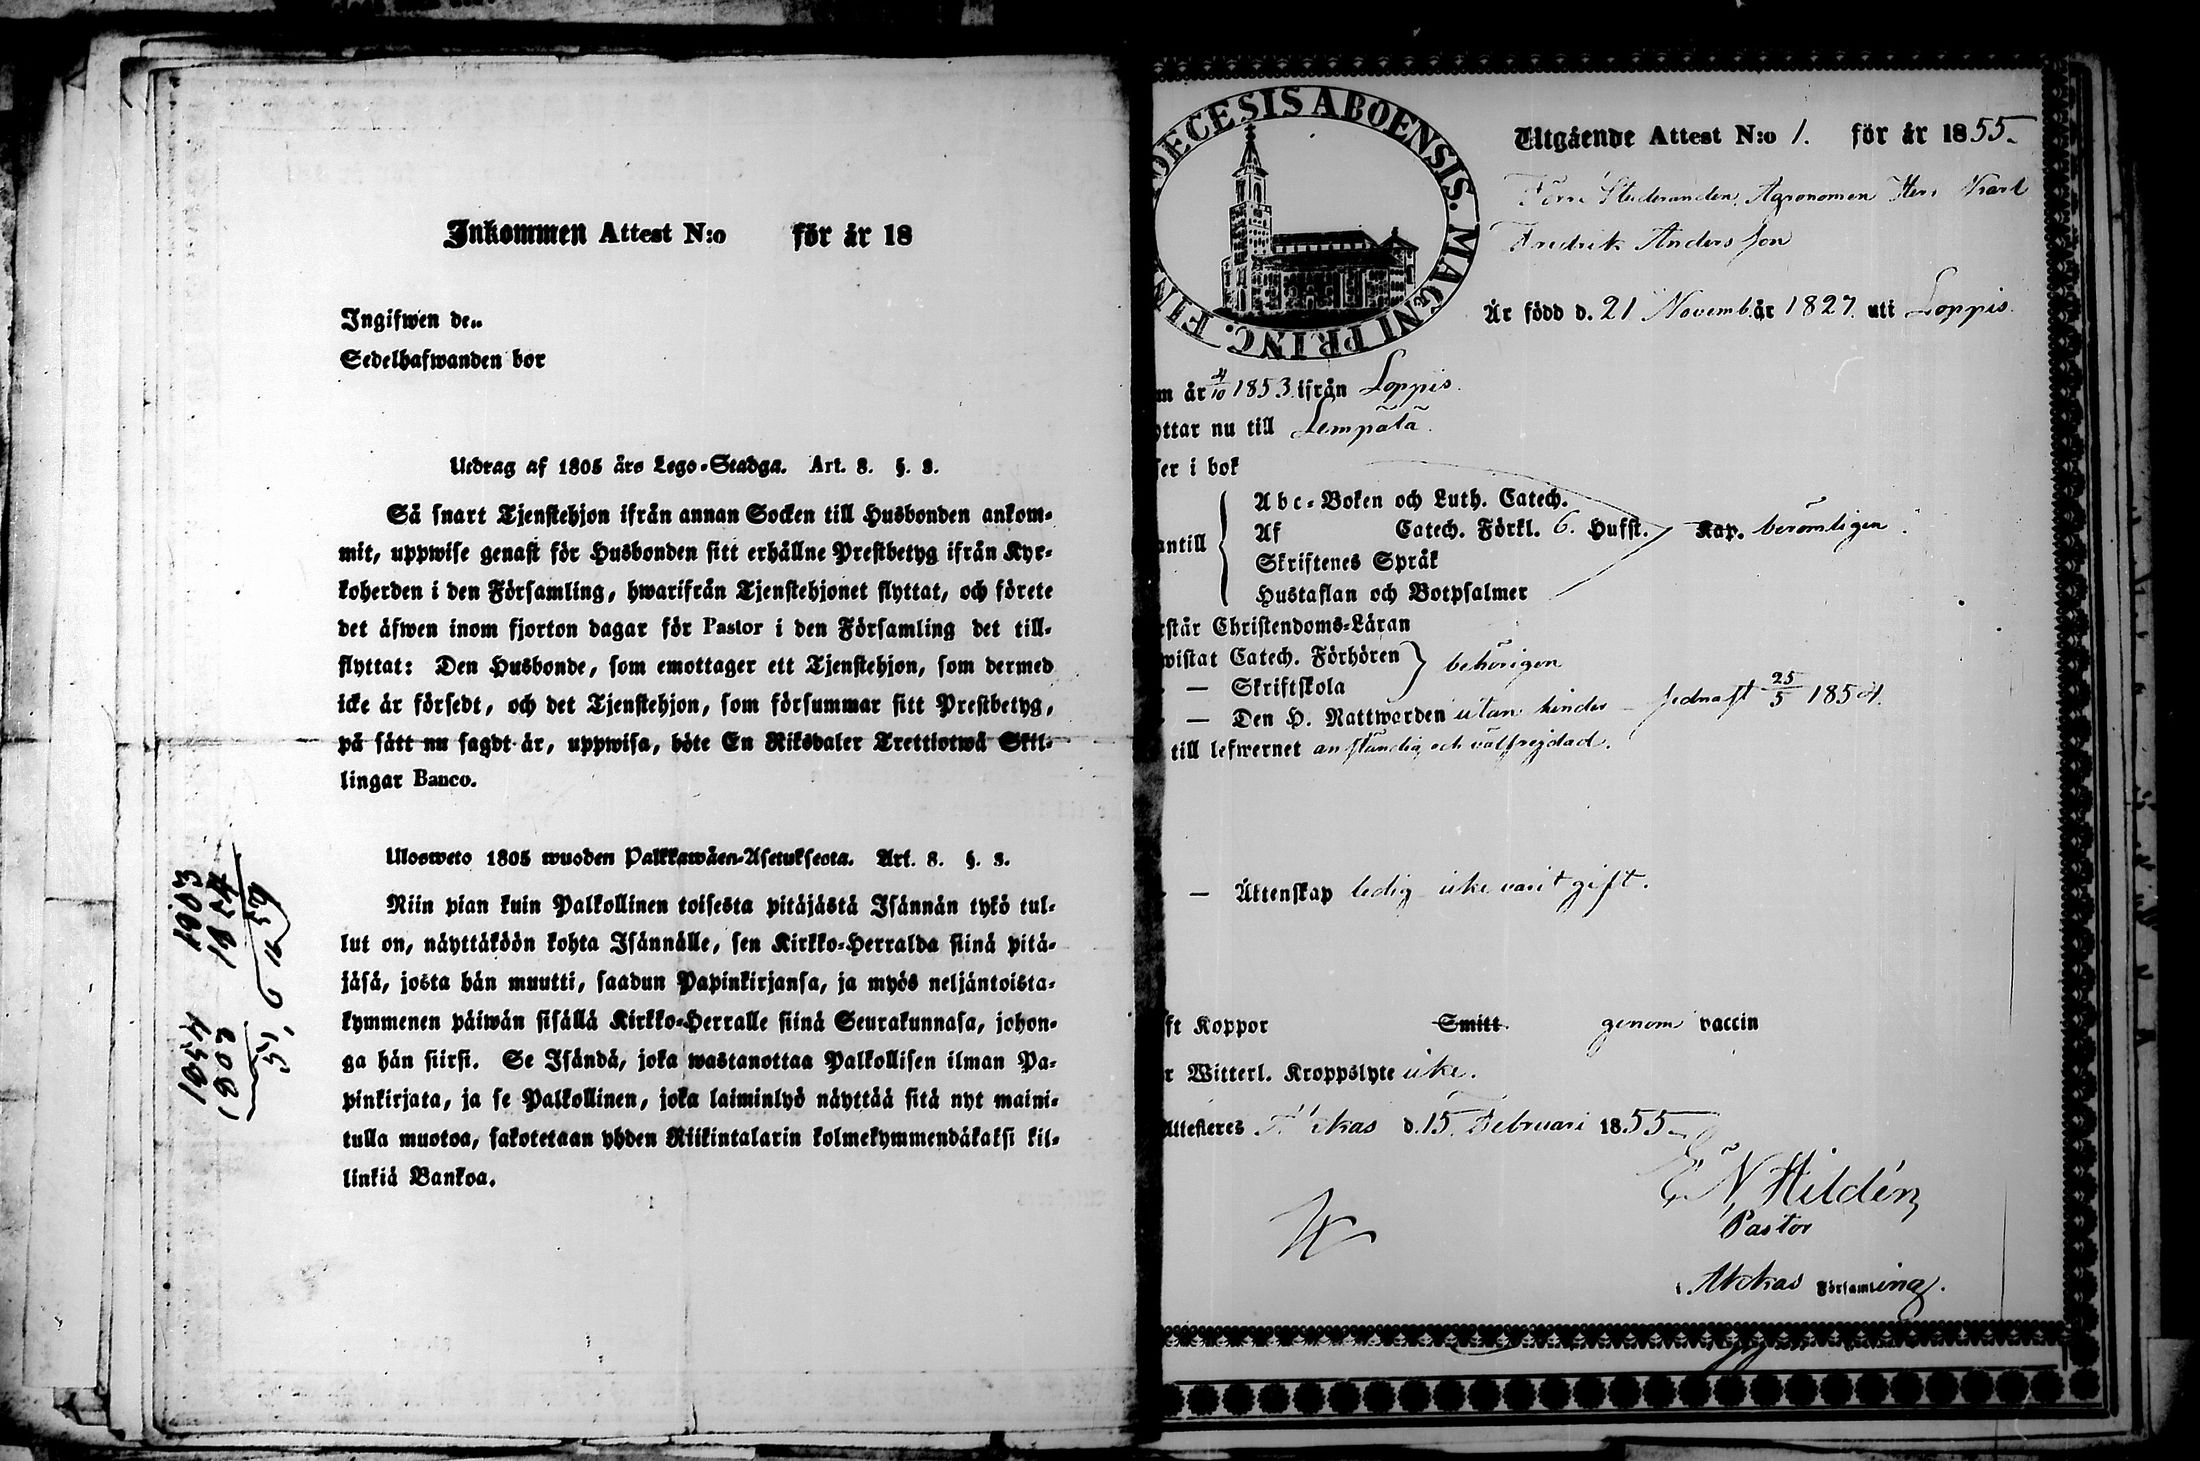 Inkommen Attest N:o för år 18
Ingifwen den
Sedelhafwanden bor
Utdrag af 1805 års Lego-Stadga. Art. 8. §. 3.
Så snart Tjenstehjon ifrån annan Socken till Husbonden ankom-
mit, uppwise genast för Husbonden sitt erhållne Prestbetyg ifrån Kyr-
koherden i den Församling, hwarifrån Tjenstehjonet flyttat, och förete
det äfwen inom fjorton dagar för Pastor i den Församling det till-
flyttat: Den Husbonde, som emottager ett Tjenstehjon, som dermed
icke är försedt, och det Tjenstehjon, som försummar sitt Prestbetyg,
på sätt nu sagdt är, uppwisa, böte En Riksdaler Trettiotwå Skil-
lingar Banco.
Uloswеto 1805 wuoden Palkkawäen-Asetuksesta. Art. 8. §. 3.
Niin pian kuin Palkollinen toisesta pitäjästä Isännän tykö tul-
lut on, näyttäköön kohta Isännälle, sen Kirkko-Herralda siinä pitä-
jäsä, josta hän muutti, saadun Papinkirjansa, ja myös neljäntoista-
kymmenen päiwän sisällä Kirkko-Herralle siinä Seurakunnasa, johon-
ga hän siirsi. Se Isändä, joka wastanottaa Palkollisen ilman Pa-
pinkirjata, ja se Palkollinen, joka laiminlyö näyttää sitä nyt maini-
tulla muotoa, sakotetaan yhden Riikintalarin kolmekymmendäkaksi kil-
linkiä Bankoa.
DECESIS ABOENSIS. MAGNI PRINC. FIN
Utgående Attest N:o 1. för år 1855
Förre Studeranden, Agronomen Herr Karl
Fredrik Andersson
Är född d. 21 Novemb. år 1827 uti Loppis.
m år 4/10 1853 ifrån Loppis.
ttar nu till Lempäla.
ser i bok
antill
Abc-Boken och Luth. Catech.
Af Catech. Förkl. 6. Hufst. Kap. berömligen
Skriftenes Språk
Hustaflan och Botpsalmer
rstår Christendoms-Läran
wistat Catech. Förhören behörigen
— Skriftskola
— Den H. Nattwarden utan hinder sednast 25/5 1854.
till lefwernet anständig och välfrejdad.
— Äktenskap ledig icke varit gift.
ft Koppor Smitt genom vaccin
r Witterl. Kroppslyte icke.
Attesteres Akkas d. 15 Februari 1855
E N Hildén
Pastor
i Akkas Församling.